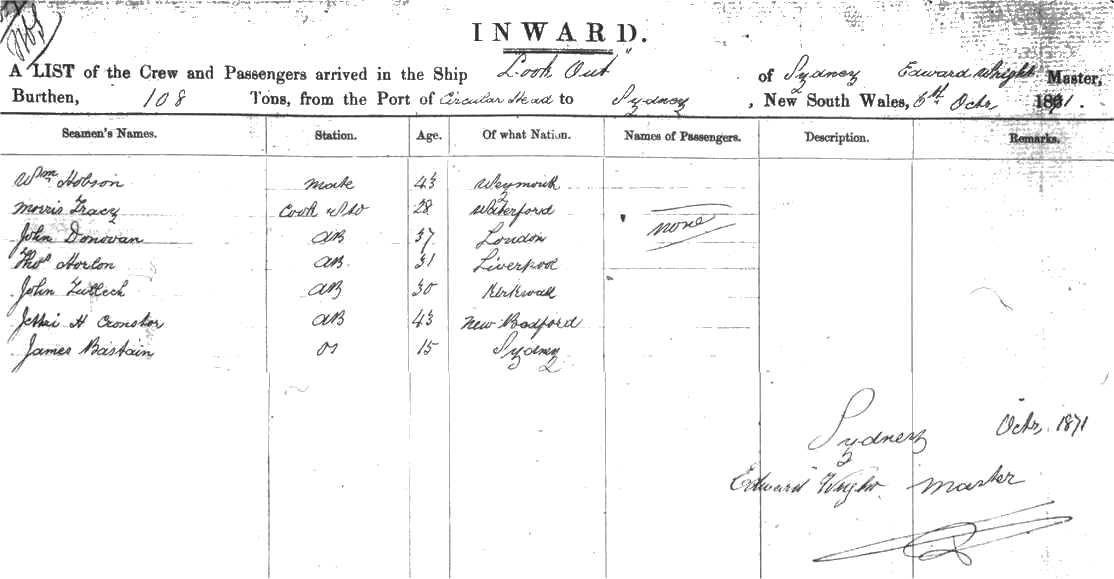 INWARD.
A LIST of the Crew and Passengers arrived in the Ship Look Out of Sydney Edward Wright Master,
Burthen, 108 Tons, from the Port of Circular Head to Sydney, New South Wales, Octr 1871.
Seamen's Names. Station. Age. Of what Nation. Names of Passengers. Description. Remarks.
Wm Hobson mate 43 Weymouth
Morris Tracy Cook 28 Waterford none
John Donovan AB 37 London
Thos Horton AB 31 Liverpool
John AB 30 Kirkwall
H AB 43 New Bedford
James Bastain OS 15 Sydney
Sydney Octr 1871
Edward Wright Master